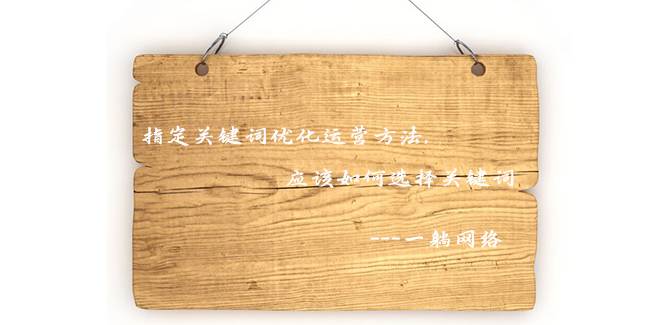 指定关键词优化运营方法,
应该如何选择关键词
---一躺网络